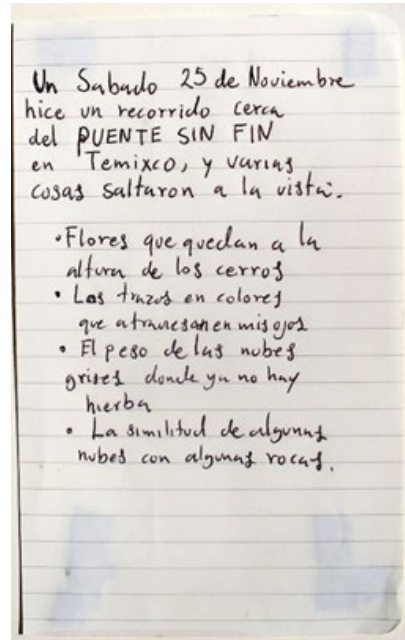 Un Sabado 25 de Noviembre
hice un recorrido cerca
del PUENTE SIN FIN
en Temixco, y varias
cosas saltaron a la vista.
• Flores que quedan a la
altura de los cerros
• Los trazos en colores
que atraviesan en mis ojos
• El peso de las nubes
grises donde ya no hay
hierba
• La similitud de algunas
nubes con algunas rocas.